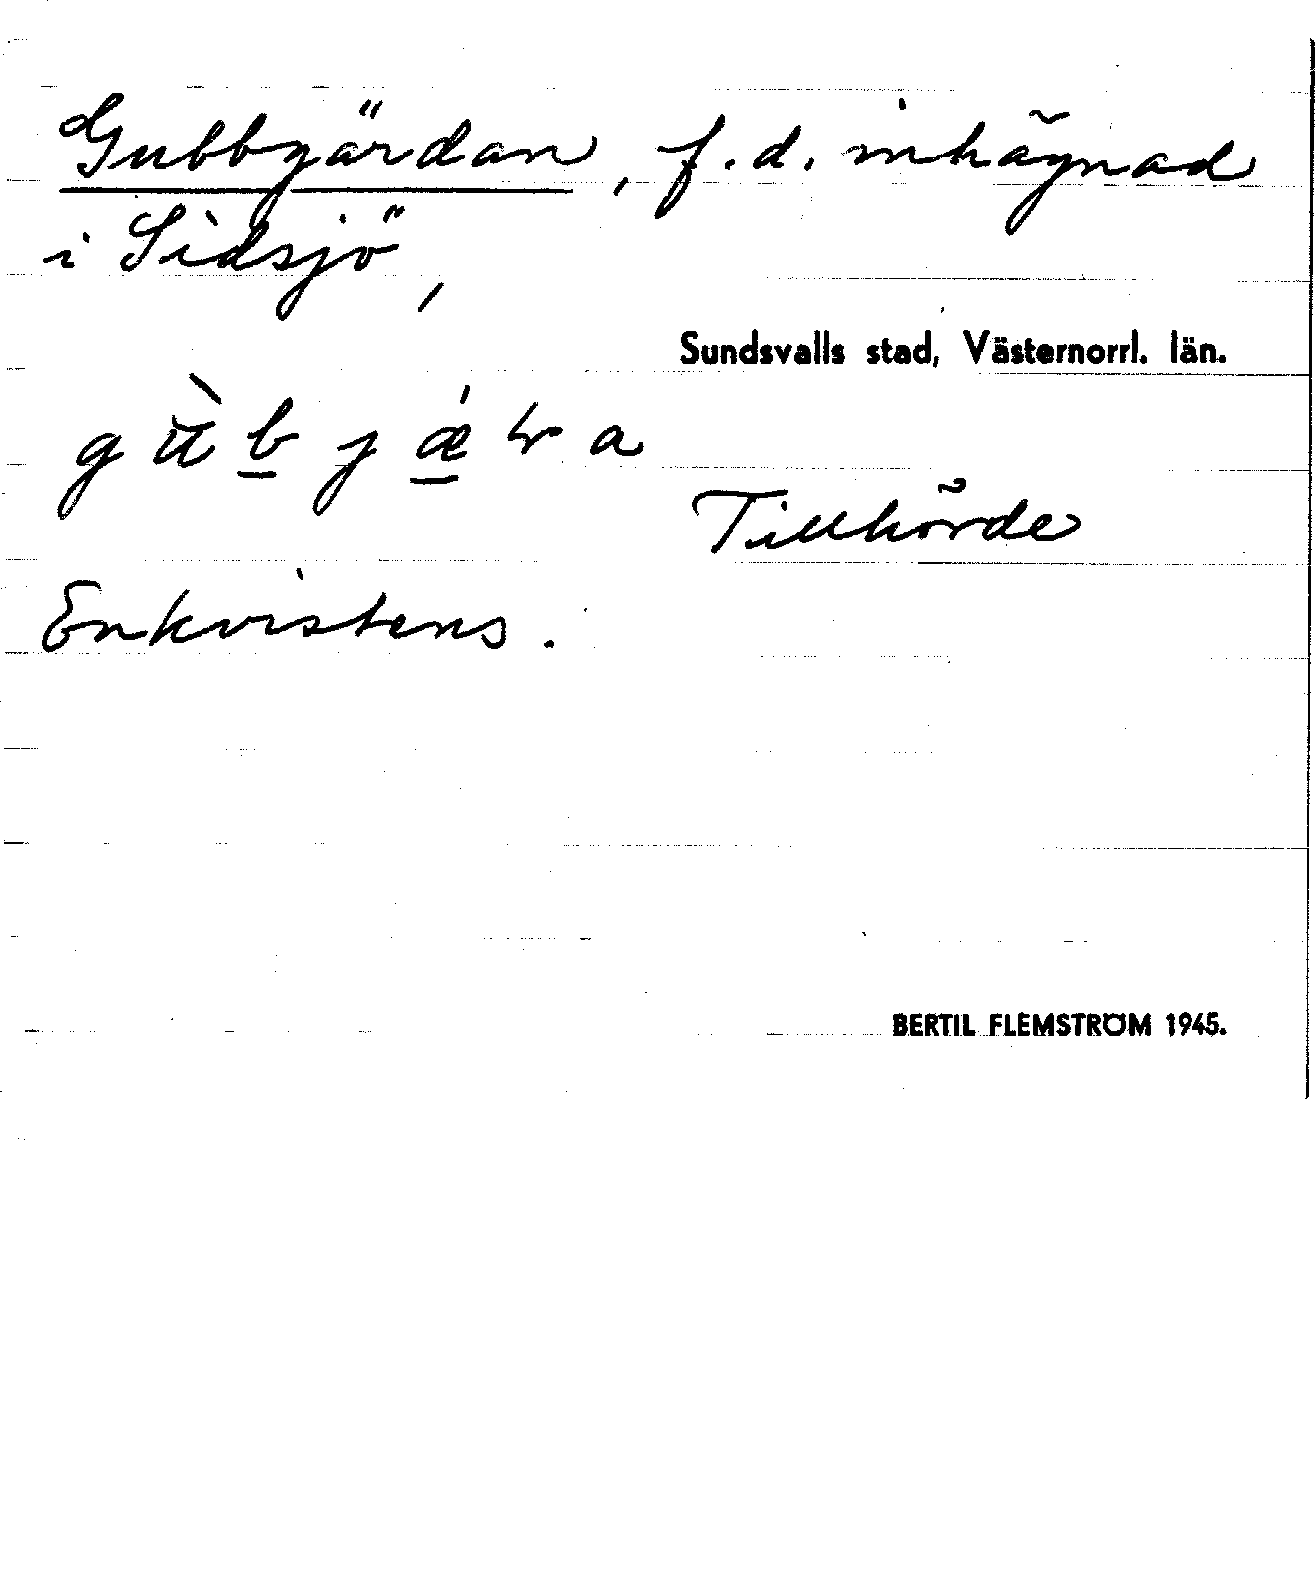 Gubbgärdan, f.d. inhägnad
i Sidsjö,
Sundsvalls stad, Västernorrl. län.
Tillhörde
Enkvistens.
BERTIL FLEMSTRÖM 1945.